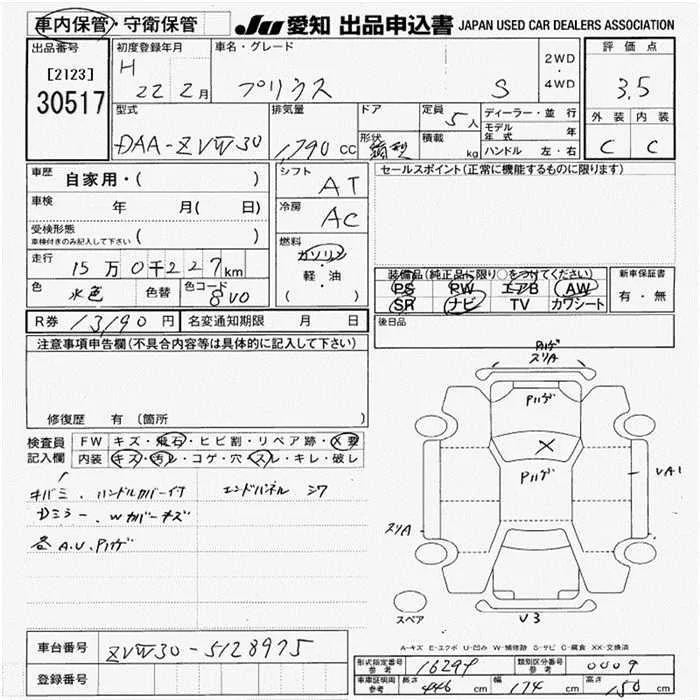 車内保管・守衛保管
JU 愛知 出品申込書 JAPAN USED CAR DEALERS ASSOCIATION
出品番号
[2123]
30517
初度登録年月
H 22 2月
車名・グレード
プリウス S
2WD
・
4WD
評価点
3.5
外装 内装
C C
型式
DAA-ZVW30
排気量
1,790 cc
ドア
形状
箱型
定員
5人
積載
kg
ディーラー・並行
モデル年式 年
ハンドル 左・右
車歴 自家用・( )
車検 年 月( 日)
受検形態
車検付きのみ記入して下さい ( )
走行 15万0千227km
色 水色 色替 色コード 8V0
シフト
AT
冷房
AC
燃料
ガソリン
・
軽・油
( )
セールスポイント(正常に機能するものに限ります)
装備品(純正品に限り○をつけてください)
PS PW エアB AW
SR ナビ TV カワシート
新車保証書
有・無
R券 13190円 名変通知期限 月 日
後日品
注意事項申告欄(不具合内容等は具体的に記入して下さい)
修復歴 有 〔箇所 〕
検査員
記入欄
FW キズ・飛石・ヒビ割・リペア跡・X要
内装 キズ・汚レ・コゲ・穴・スレ・キレ・破レ
キバミ、ハンドルカバー付 エンドパネル シワ
Dミラー、Wカバーキズ
各A.U.Pハゲ
Pハゲ
スリA
Pハゲ
X
Pハゲ
UA1
スリA
スペア
U3
A-キズ E-エクボ U-凹み W-補修跡 S-サビ C-腐食 XX-交換済
車台番号 ZVW30-5128975
登録番号
型式指定番号 参考 16294 類別区分番号 参考 0009
車庫証明用 参考 長さ 446 cm 幅 174 cm 高さ 150 cm